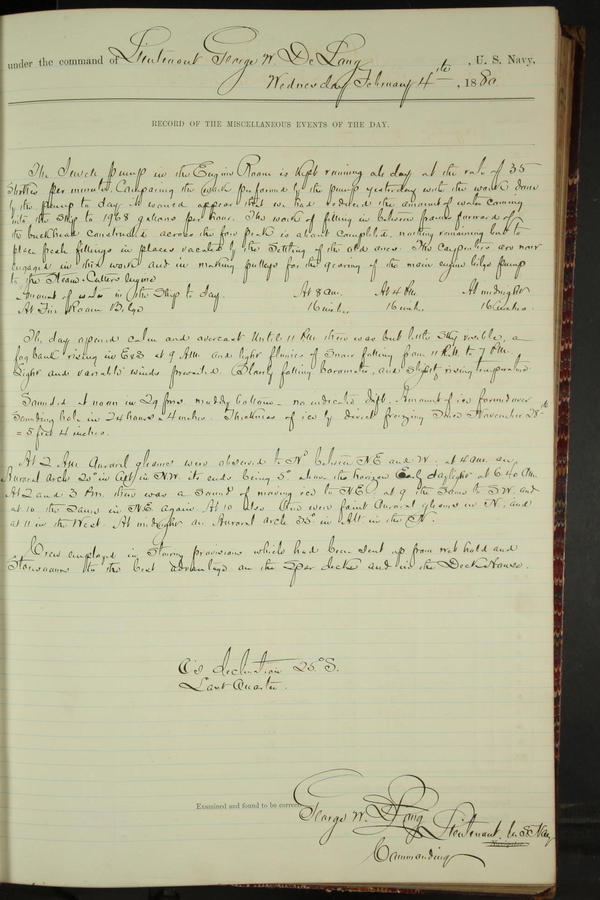 under the command of Lieutenant George W. De Long, U. S. Navy,
Wednesday February 4th, 1880
RECORD OF THE MISCELLANEOUS EVENTS OF THE DAY.
The Sewell pump in the Engine Room is kept running all day at the rate of 35
Strokes per minute. Comparing the work performed by the pump yesterday with the work done
by the pump to day it would appear that we had reduced the amount of water coming
into the Ship to 1968 gallons per hour. The work of filling in between frames forward of
the bulkhead constructed across the fore peak is about completed, nothing remaining but to
place fresh fillings in places vacated by the settling of the old ones. The Carpenters are now
engaged in this work and in making pulleys for the gearing of the main engine bilge pump
to the Steam Cutters engine
Amount of water in the Ship to day. At 8 am. At 4 PM. At midnight
At Fire Room Bilge 16 inches 16 inch. 16 inches.
The day opened calm and overcast Until 11 PM there was but little sky visible, a
fog bank rising in E & S at 9 AM. and light flurries of Snow falling from 11 A.M. to 7 PM.
Light and variable winds prevailed. Slowly falling barometer, and slightly rising temperature
Sounded at noon in 29 fms. muddy bottom - no indicated drift. Amount of ice formed over
Sounding hole in 24 hours = 4 inches. Thickness of ice by direct freezing since November 28th
= 5 feet 4 inches.
At 2 AM Auroral gleams were observed to Nd between NE and W. at 4 am. an
Auroral arch 20° in alt in NW. its ends being 5° above the horizon Early daylight at 6.40 AM.
At 2 and 3 Pm. there was a Sound of moving ice to NE. at 9 the Same to SW. and
at 10 the Same in NE again. At 10 also there were faint Auroral gleams in N. and
at 11 in the West. At midnight an Auroral arch 35° in Alt in the N.
Crew employed in Stowing provisions which had been sent up from wet hold and
Storerooms to the best advantage on the Spar decks and in the Deck House.
C's declination 25° S.
Last Quarter.
Examined and found to be correct.
George W. De Long Lieutenant, U.S. Navy
Navigator.
Commanding